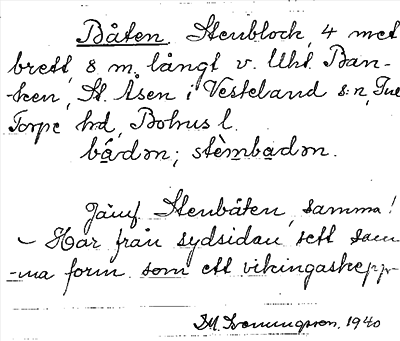 Båten, Stenblock, 4 met
brett, 8 m. långt v. Uht. Ban-
ken, St. Åsen i Vesteland s:n, Inl
Torpe hd, Bohus l.
bådən; stènbadən.
Jämf. Stenbåten, samma!
– Har från sydsidan sett sam-
ma form som ett vikingaskepp
1940